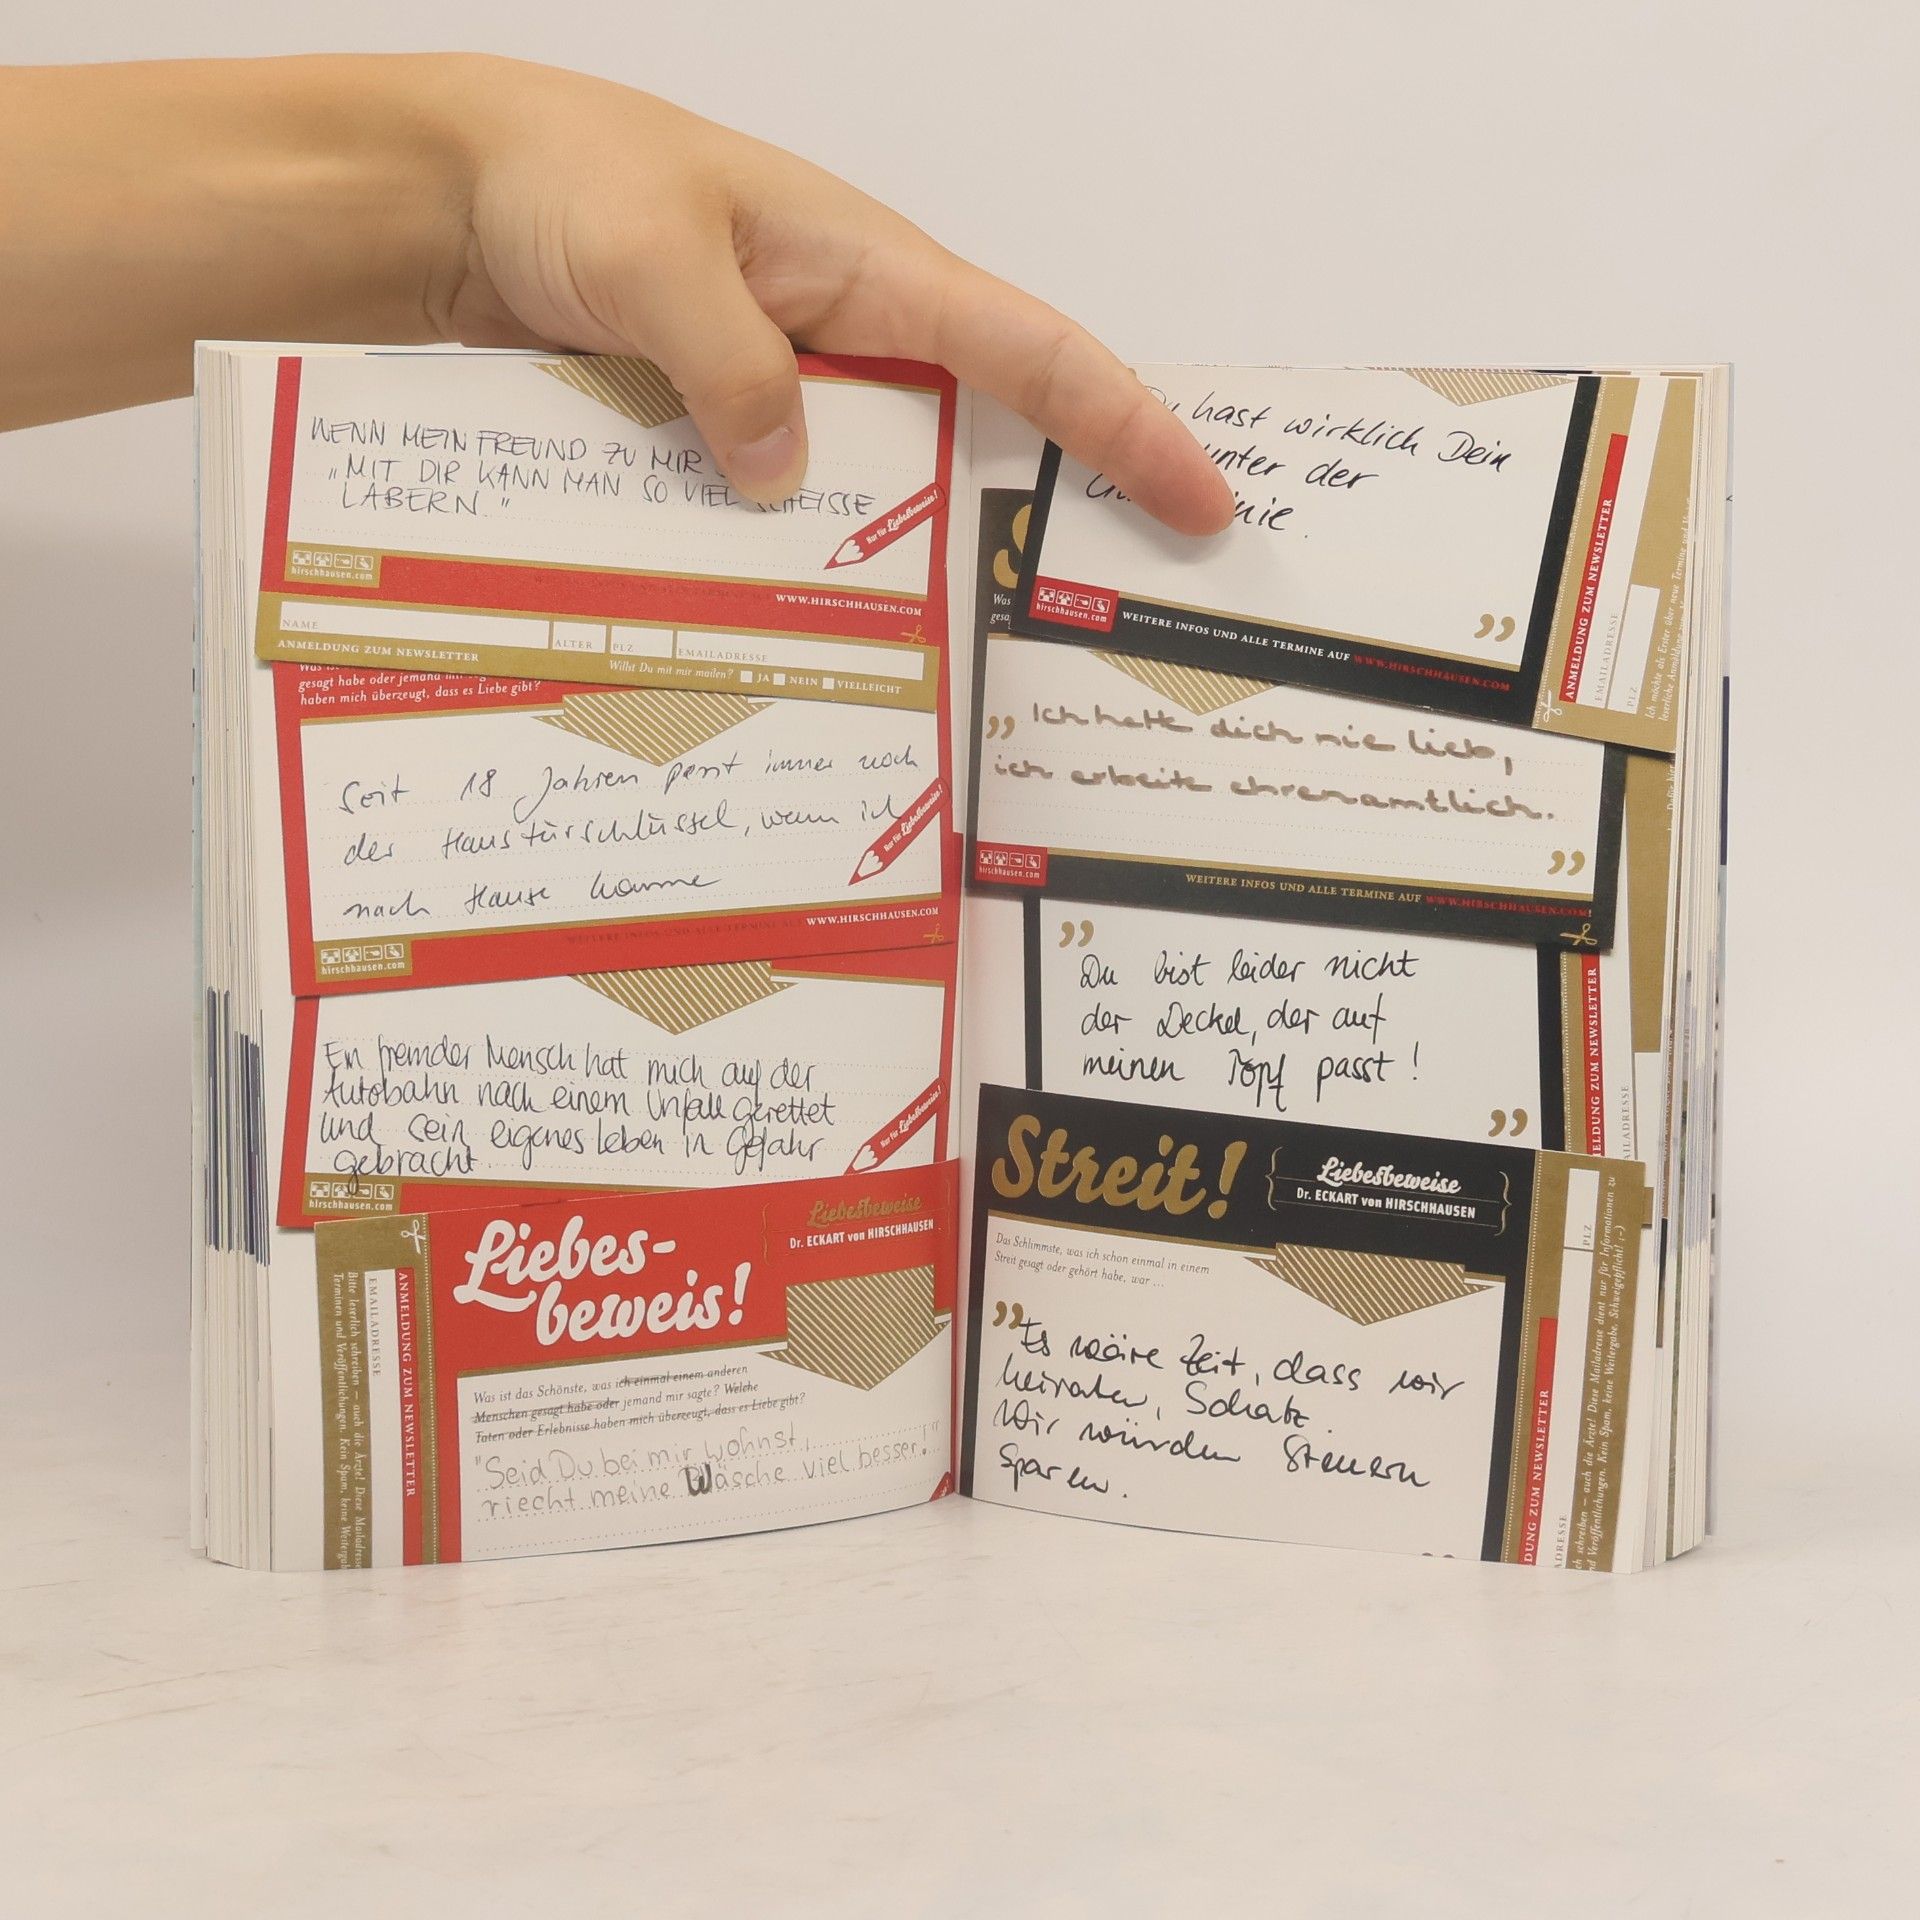 WENN MEIN FREUND ZU MIR
„MIT DIR KANN MAN SO VIEL SCHEISSE
LABERN"
Nur für Liebesbeweise!
hirschhausen.com
WWW.HIRSCHHAUSEN.COM
NAME
ALTER
PLZ
EMAILADRESSE
ANMELDUNG ZUM NEWSLETTER
Willst Du mit mir mailen? JA NEIN VIELLEICHT
gesagt habe oder jemand
haben mich überzeugt, dass es Liebe gibt?
Seit 18 Jahren passt immer noch
der Haustürschlüssel, wenn ich
nach Hause komme
Nur für Liebesbeweise!
WWW.HIRSCHHAUSEN.COM
hirschhausen.com
Ein fremder Mensch hat mich auf der
Autobahn nach einem Unfall gerettet
und sein eigenes Leben in Gefahr
gebracht
Nur für Liebesbeweise!
hirschhausen.com
Liebesbeweise
Dr. ECKART von HIRSCHHAUSEN
Liebes-
beweis!
Was ist das Schönste, was ich einmal einem anderen
Menschen gesagt habe oder jemand mir sagte? Welche
Taten oder Erlebnisse haben mich überzeugt, dass es Liebe gibt?
"Seid Du bei mir wohnst,
riecht meine Wäsche viel besser!"
ANMELDUNG ZUM NEWSLETTER
EMAILADRESSE
Bitte leserlich schreiben – auch die Ärzte! Diese Mailadresse
Terminen und Veröffentlichungen. Kein Spam, keine Weitergabe
hast wirklich Dein
unter der
hirschhausen.com
WEITERE INFOS UND ALLE TERMINE AUF WWW.HIRSCHHAUSEN.COM
ANMELDUNG ZUM NEWSLETTER
EMAILADRESSE
PLZ
Ich möchte als Erster über neue Termine und
„Ich hatte dich nie lieb,
ich arbeite ehrenamtlich.
hirschhausen.com
WEITERE INFOS UND ALLE TERMINE AUF WWW.HIRSCHHAUSEN.COM
Du bist leider nicht
der Deckel, der auf
meinen Topf passt!
ELDUNG ZUM NEWSLETTER
Streit!
Liebesbeweise
Dr. ECKART von HIRSCHHAUSEN
Das Schlimmste, was ich schon einmal in einem
Streit gesagt oder gehört habe, war ...
Es wäre Zeit, dass wir
heiraten, Schatz
Wir würden Steuern
sparen.
DUNG ZUM NEWSLETTER
PLZ